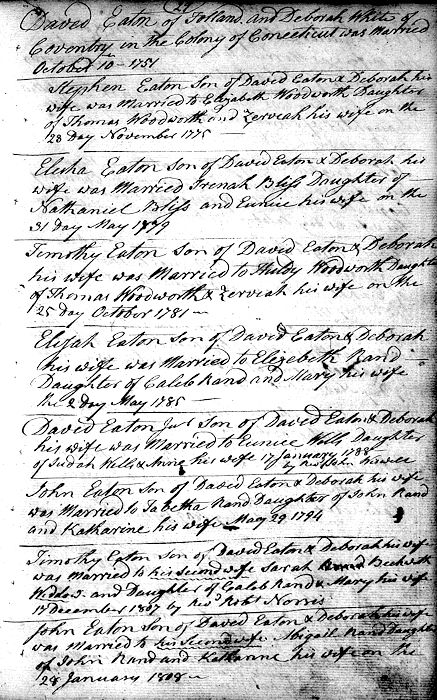 21
David Eaton of Tolland and Deborah White of
Coventry in the Colony of Conecticut was Married
October 10 - 1751
Stephen Eaton Son of David Eaton & Deborah his
wife was Married to Elizabeth Woodworth Daughter
of Thomas Woodworth and Zerviah his wife on the
28 Day November 1775
Elisha Eaton Son of David Eaton & Deborah his
wife was Married Irenah Bliss Daughter of
Nathaniel Bliss and Eunice his wife on the
31 day May 1779
Timothy Eaton Son of David Eaton & Deborah
his wife was Married to Huldy Woodworth Daughter
of Thomas Woodworth & Zerviah his wife on the
25 day October 1781
Elijah Eaton Son of David Eaton & Deborah
his wife was Married to Elizebeth Rand
Daughter of Caleb Rand and Mary his wife
the 2 day May 1785
David Eaton Jur Son of David Eaton & Deborah
his wife was Married to Eunice Wells Daughter
of Judah Wells & Anne his wife 17 January 1788
by
John Eaton Son of David Eaton & Deborah his wife
was Married to Tabetha Rand Daughter of John Rand
and Katharine his wife May 29 1794
Timothy Eaton Son of David Eaton & Deborah his wife
was Married to his Second wife Sarah Beckwith
Widdow and Daughter of Caleb Rand & Mary his wife
December 1807 by Revd Robt Norris
John Eaton Son of David Eaton & Deborah his wife
was Married to his Second wife Abigail Rand Daughter
of John Rand and Katharine his wife on the
28 January 1808